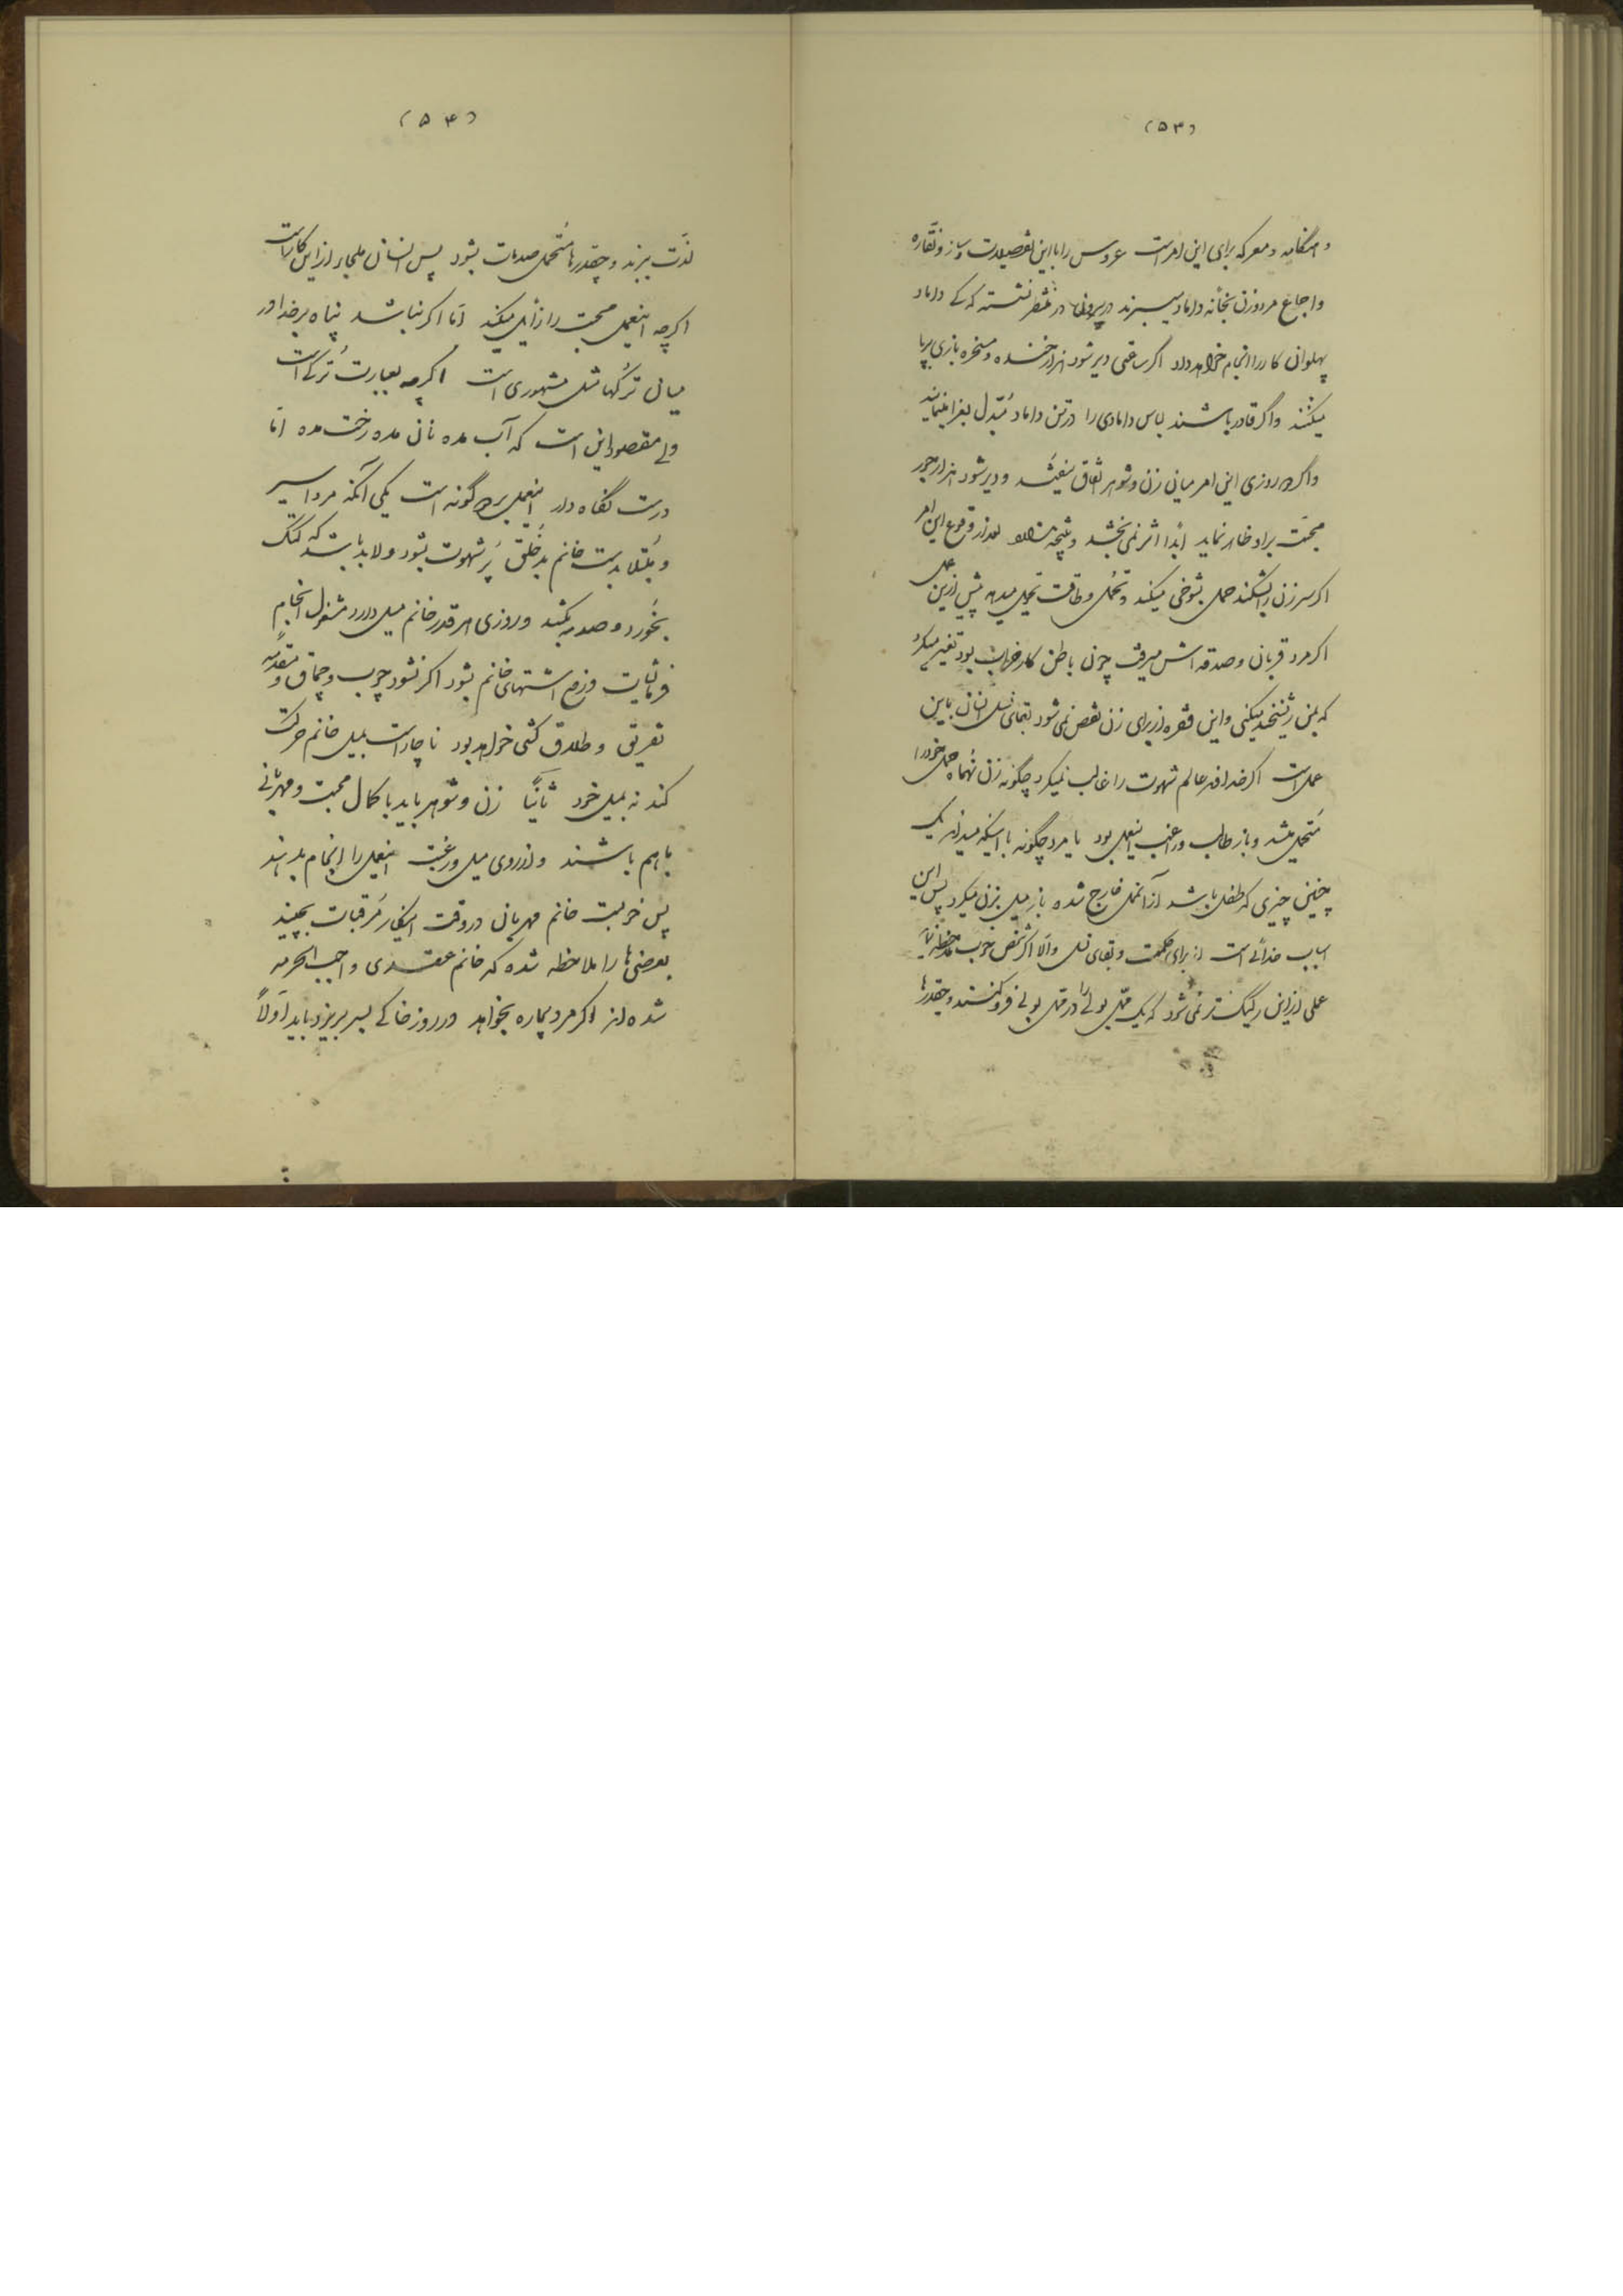 (۵۳)
و هنگامه و معرکه برای این امر است عروس را با این تفصیلات و ساز و نقّاره
و اجماع مرد و زن بخانه داماد میبرند در بیرونها در منتظر نشسته که کی داماد
پهلوانی کار را انجام خواهد داد اگر ساعتی دیر شود هزار خنده و مسخره بازی برپا
میکنند و اگر قادر باشند لباس دامادی را در تن داماد مُبدّل بعزا مینمایند
و اگر روزی این امر میانی زن و شوهر اتفاق نیفتد و دیر شود هزار جور
محبّت براو ظاهر نماید ابداً اثر نمی بخشد و نتیجه بعد از وقوع این امر
اگر سر زن را بشکنند حمل بشوخی میکند و تحمّل و طاقت پیش ازین عمل
اگر مرد قربان و صدقه اش میرفت چون باطن کار خراب بود تغیّر میکرد
که بمن ریشخند میکنی و این فقره از برای زن نقص نمی شود بقای نسل انسان باین
عمل است اگر خدا قدر عالم شهوت را غالب نمیکرد چگونه زن نُه ماه حمل خود را
مُتحمّل میشد و باز طالب و راغب اینعمل بود یا مرد چگونه با اینکه میداند یک
چنین چیزی که طفل باشد از آنمحل خارج شده باز میل بزن میکرد پس این
اسباب خدائی است از برای حکمت و بقای نسل والّا اگر شخص خوب ملاحظه نماید
عملی ازاین رکیک تر نمی شود که یک محل بولی را در محل بولی فرو کنند و چقدرها
(۵۴)
لذّت ببرند و چقدرها مُتحمّل صدمات بشود پس انسان ملجاء ازاین کار است
اگرچه اینعمل محبت را زائل میکند امّا اگر نباشد پناه بر خدا در
میان ترکها مثل مشهوری است اگرچه بعبارت تُرکی است
ولی مقصود این است که آب مده نان مده رخت مده امّا
درست نگاه دار اینعمل بر دو گونه است یکی آنکه مرد اسیر
و مُبتلا بدست خانم بدخُلق پُر شهوت بشود و لابد باشد که کتک
بخورد و صدمه بکشد و روزی هر قدر خانم میل دارد مشغول انجام
فرمایشات و رفع اشتهای خانم بشود اگر نشود چوب و چماق و مقدّمه
تفریق و طلاق کشی خواهد بود ناچار است بمیل خانم حرکت
کند نه بمیل خود ثانیاً زن و شوهر باید با کمال محبت و مهربانی
باهم باشند و از روی میل و رغبت اینعمل را انجام بدهند
پس خوبست خانم مهربان در وقت اینکار مُرقبات بچیند
بعضی ها را ملاحظه شده که خانم عقدی و احب الحرمه
شده اند اگر مرد بیچاره بخواهد در روز خاکی بسر بریزد باید اوّلاً